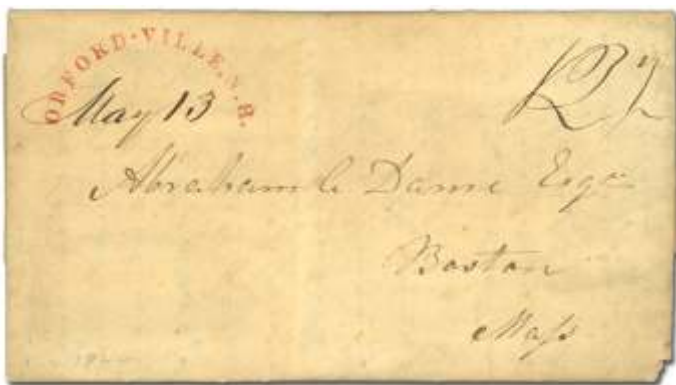 ORFORD-VILLE.N.H.
May 13
12½
Abraham C Dame Esqr
Boston
Mass